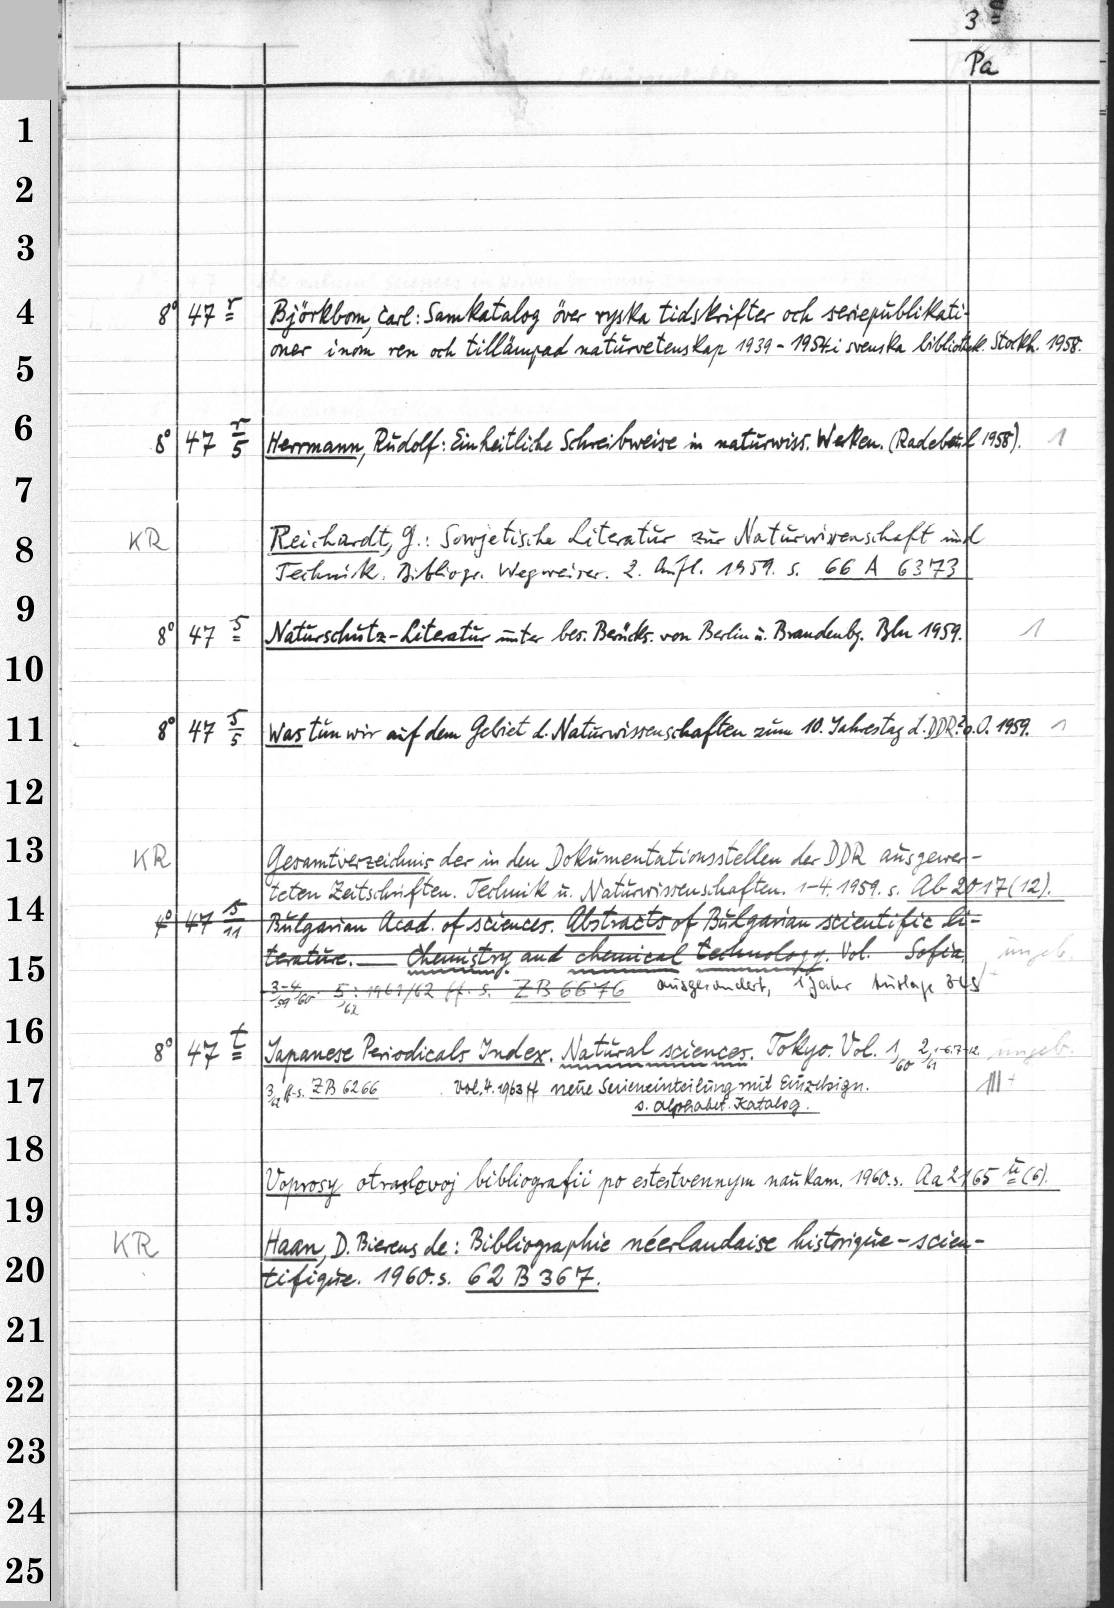 3 a
Pa
1
2
3
4
8° 47 r Björkbom, Carl: Samkatalog över ryska tidskrifter och seriepublikati-
oner inom ren och tillämpad naturvetenskap 1939-1954 i svenska bibliotek. Stockh. 1958.
5
6
8° 47 r/5 Herrmann, Rudolf: Einheitliche Schreibweise in naturwiss. Werken. (Radebeul 1958). 1
7
8
KR Reichardt, G.: Sowjetische Literatur zur Naturwissenschaft und
Technik. Bibliogr. Wegweiser. 2. Aufl. 1959. s. 66 A 6373
9
8° 47 s Naturschutz-Literatur unter bes. Berücks. von Berlin u. Brandenbg. Bln 1959. 1
10
11
8° 47 s/5 Was tun wir auf dem Gebiet d. Naturwissenschaften zum 10. Jahrestag d. DDR? o.O. 1959. 1
12
13
KR Gesamtverzeichnis der in den Dokumentationsstellen der DDR ausgewer-
teten Zeitschriften. Technik u. Naturwissenschaften. 1-4. 1959. s. Ab 2017 (12).
14
4° 47 s/11 Bulgarian Acad. of sciences. Abstracts of Bulgarian scientific li-
15
terature. — Chemistry and chemical technology. Vol. Sofia. ungeb.
3-4/59/60. 5/62: 1961/62 ff. s. ZB 6676 ausgesondert, 1 Jahr Auslage ZLS
16
8° 47 t Japanese Periodicals Index. Natural sciences. Tokyo. Vol. 1/60 2/61 1-6.7-12. ungeb.
17
3/62 ff. s. ZB 6266 Vol. 4. 1963 ff neue Serieneinteilung mit Einzelsign. III +
s. alphabet. Katalog.
18
Voprosy otraslevoj bibliografii po estestvennym naukam. 1960. s. Aa 2165 u (6).
19
KR Haan, D. Bierens de: Bibliographie néerlandaise historique-scien-
20
tifique. 1960. s. 62 B 367.
21
22
23
24
25